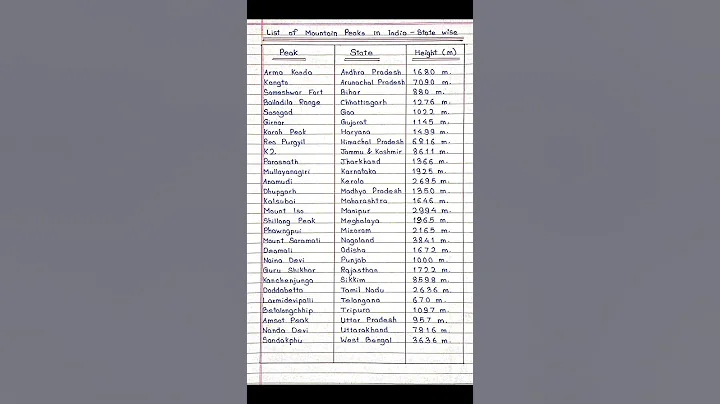 List of Mountain Peaks in India - State wise
Peak State Height (m)
Arma Konda Andhra Pradesh 1680 m.
Kangto Arunachal Pradesh 7090 m.
Someshwar Fort Bihar 880 m.
Bailadila Range Chhattisgarh 1276 m.
Sosogad Goa 1022 m.
Girnar Gujarat 1145 m.
Karoh Peak Haryana 1499 m.
Reo Purgyil Himachal Pradesh 6816 m.
K2. Jammu & Kashmir 8611 m.
Parasnath Jharkhand 1366 m.
Mullayanagiri Karnataka 1925 m.
Anamudi Kerala 2695 m.
Dhupgarh Madhya Pradesh 1350 m.
Kalsubai Maharashtra 1646 m.
Mount Iso Manipur 2994 m.
Shillong Peak Meghalaya 1965 m.
Phawngpui Mizoram 2165 m.
Mount Saramati Nagaland 3841 m.
Deomali Odisha 1672 m.
Naina Devi Punjab 1000 m.
Guru Shikhar Rajasthan 1722 m.
Kanchenjunga Sikkim 8598 m.
Doddabetta Tamil Nadu 2636 m.
Laxmidevipalli Telangana 670 m.
Betalongchhip Tripura 1097 m.
Amsot Peak Uttar Pradesh 957 m.
Nanda Devi Uttarakhand 7816 m.
Sandakphu West Bengal 3636 m.